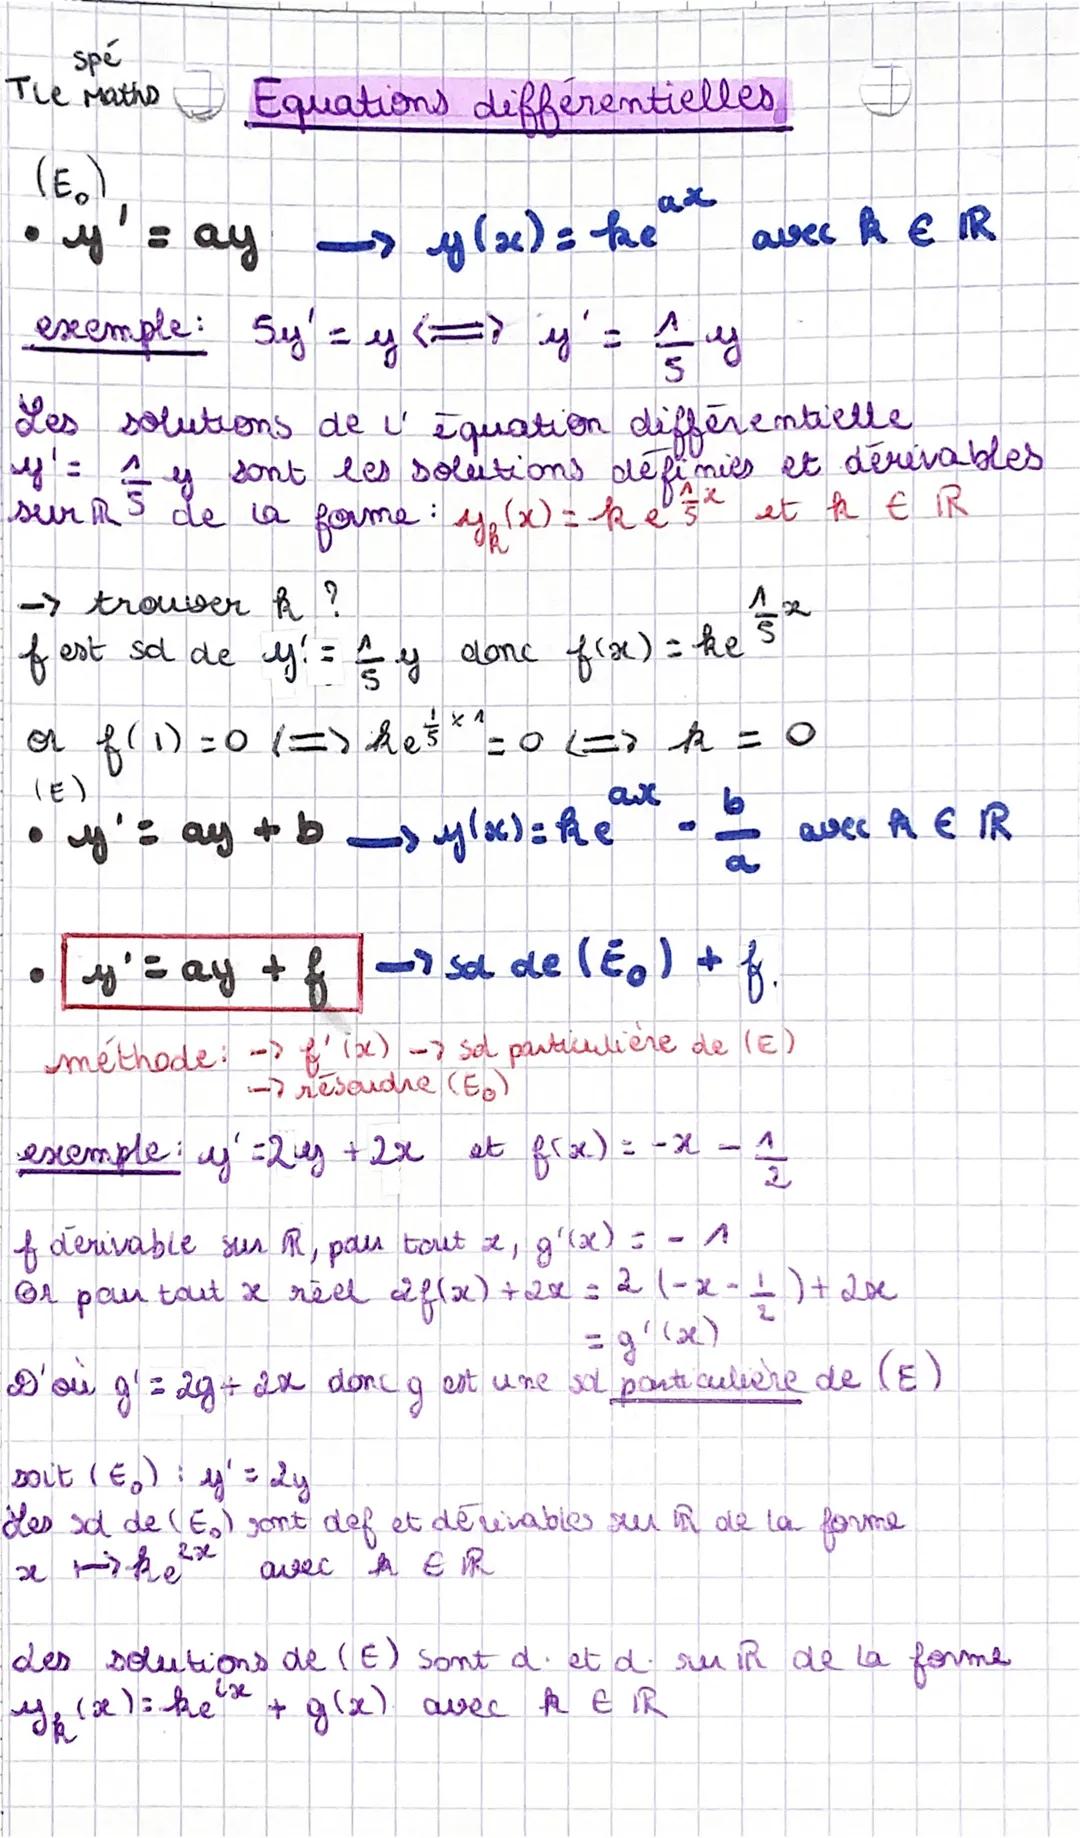 spé
Tle Maths
Equations différentielles
(E₀)
• y' = ay → y(x) = ke^{ax} avec k ∈ ℝ
exemple: 5y' = y <=> y' = 1/5 y
Les solutions de l'équation différentielle
y' = 1/5 y sont les solutions définies et dérivables
sur ℝ de la forme : y_k(x) = k e^{1/5 x} et k ∈ ℝ
→ trouver k ?
f est sol de y' = 1/5 y donc f(x) = ke^{1/5 x}
or f(1) = 0 <=> ke^{1/5 × 1} = 0 <=> k = 0
(E)
• y' = ay + b → y(x) = ke^{ax} - b/a avec k ∈ ℝ
• y' = ay + f → sol de (E₀) + f.
méthode: → f'(x) → sol particulière de (E)
→ résoudre (E₀)
exemple: y' = 2y + 2x et f(x) = -x - 1/2
f dérivable sur ℝ, pour tout x, g'(x) = - 1
Or pour tout x réel 2f(x) + 2x = 2 (-x - 1/2) + 2x
= g'(x)
D'où g' = 2g + 2x donc g est une sol particulière de (E)
soit (E₀) : y' = 2y
Les sol de (E₀) sont def et dérivables sur ℝ de la forme
x ↦ ke^{2x} avec k ∈ ℝ
Les solutions de (E) sont d. et d. sur ℝ de la forme
y_k(x) = ke^{2x} + g(x) avec k ∈ ℝ